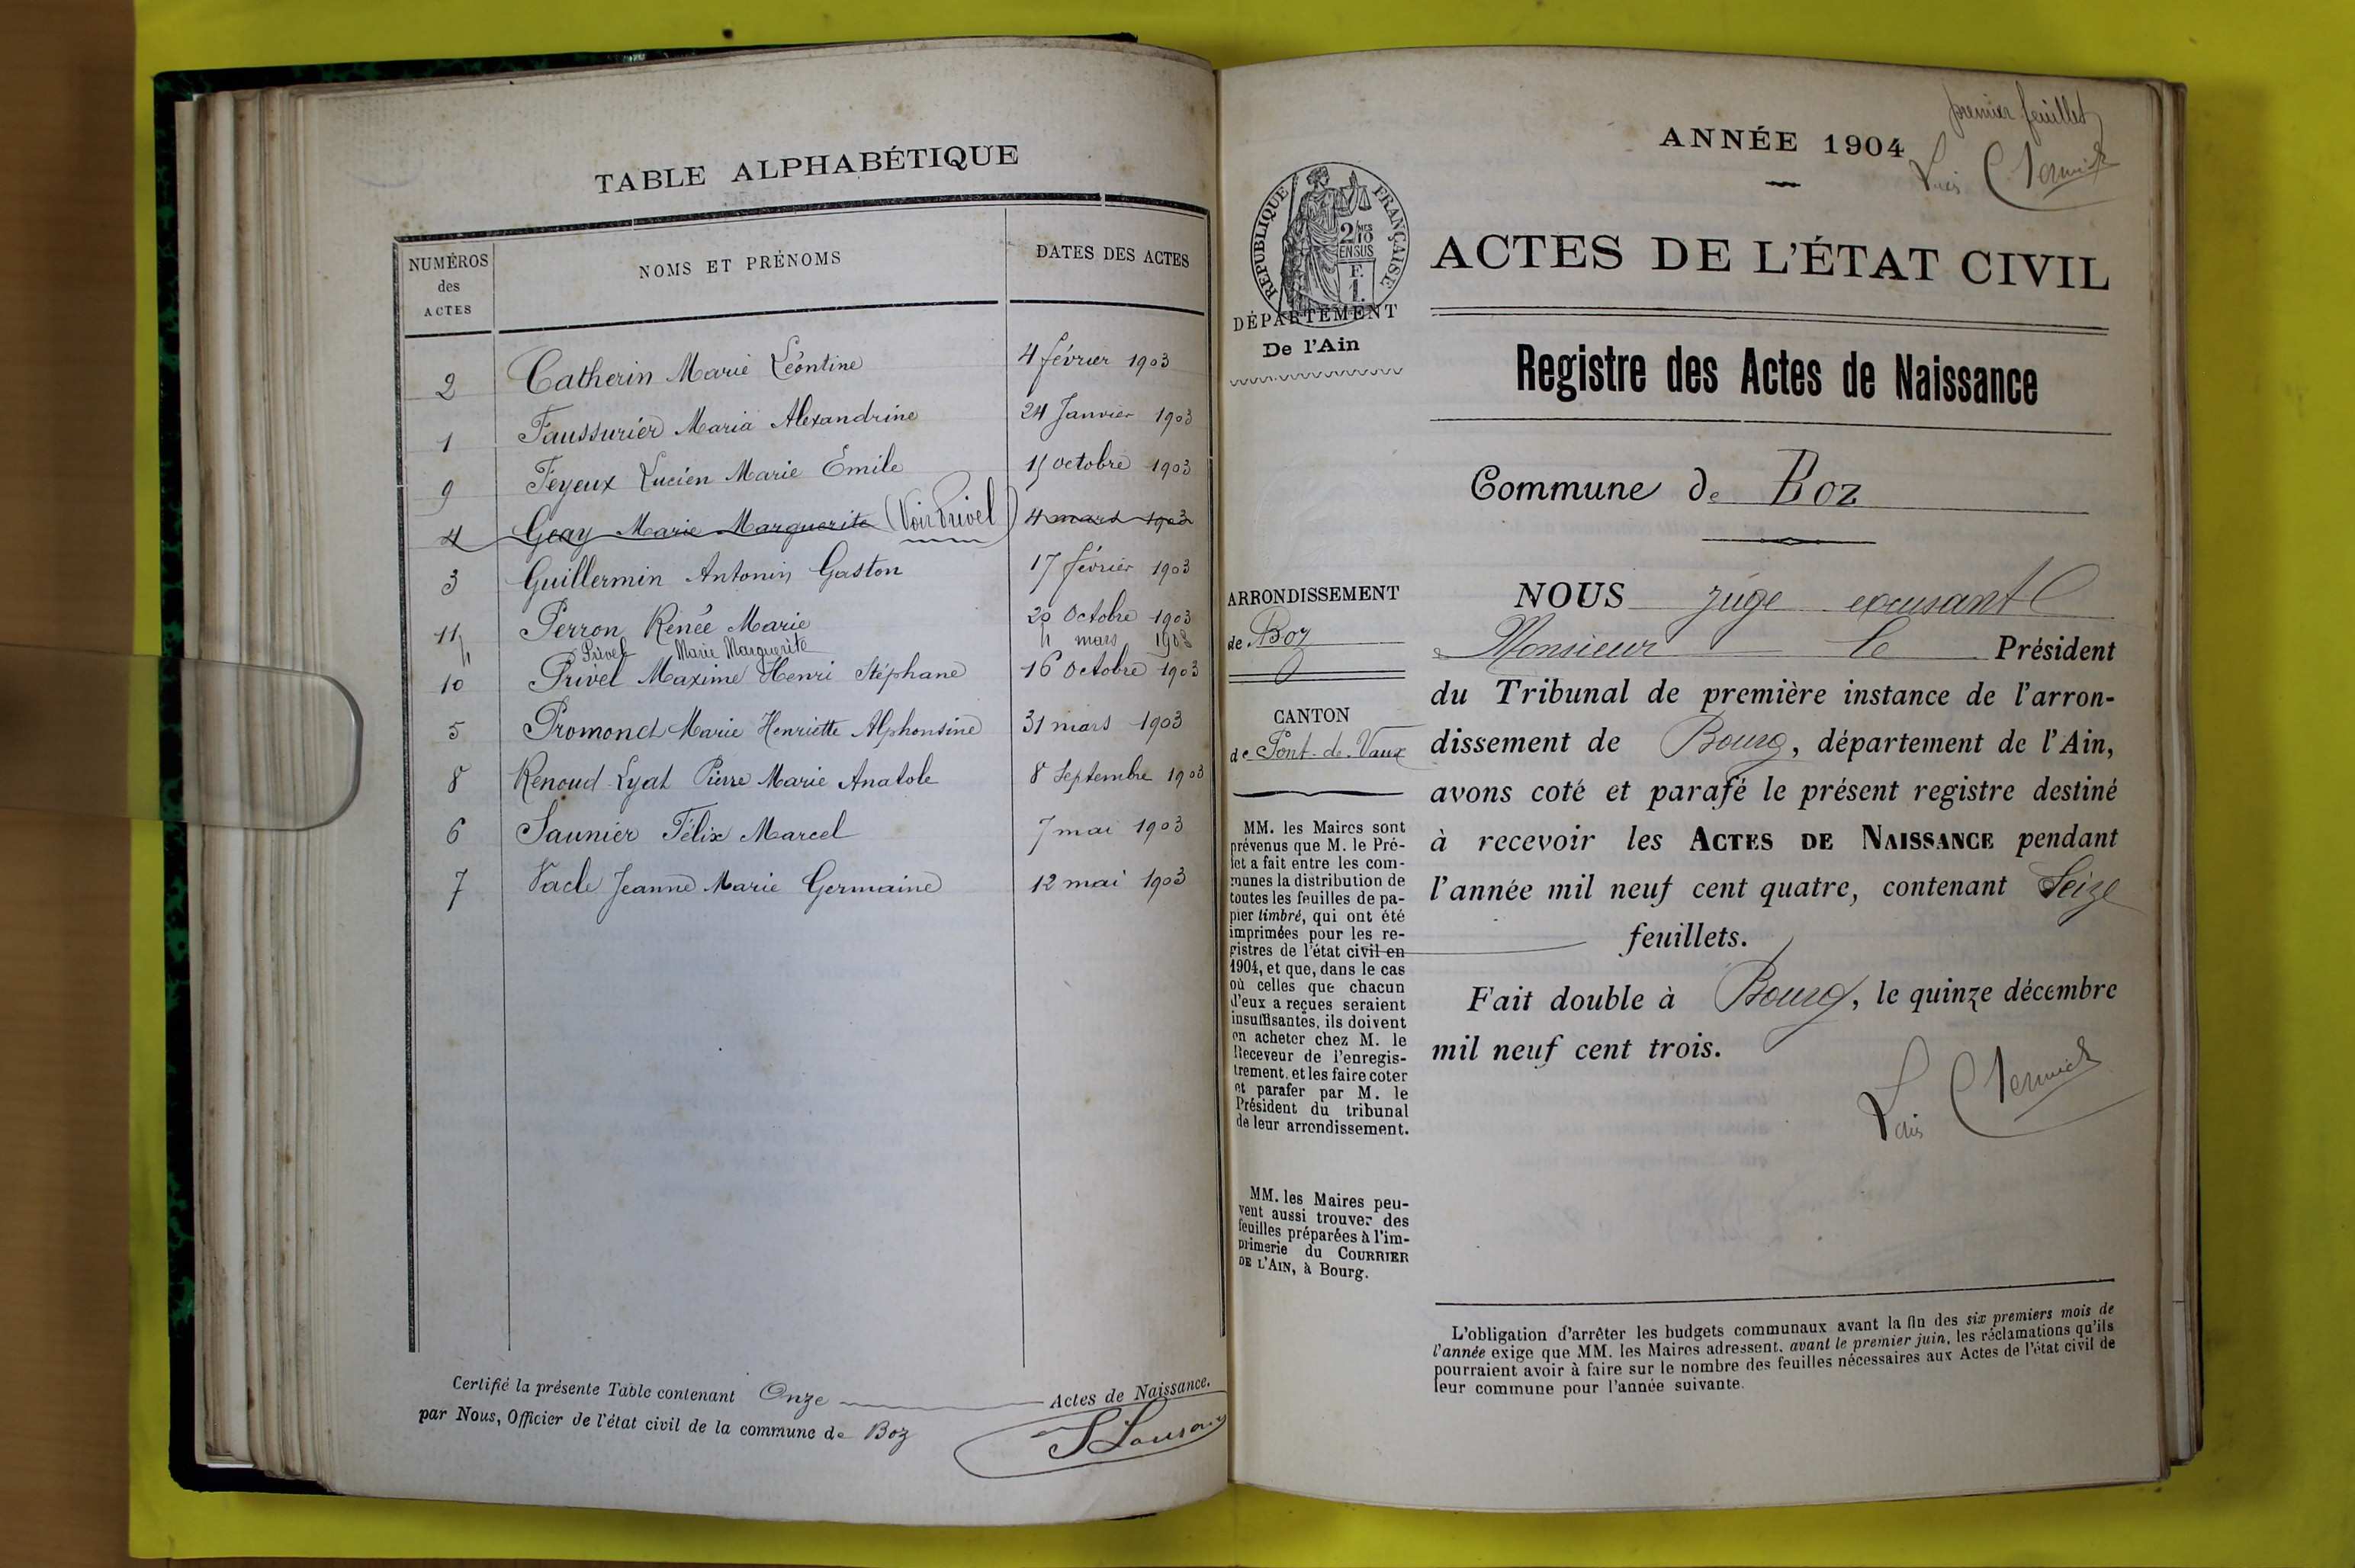 TABLE ALPHABÉTIQUE
NUMÉROS des ACTES
NOMS ET PRÉNOMS
DATES DES ACTES
2 Catherin Marie Léontine 4 février 1903
1 Faussurier Maria Alexandrine 24 Janvier 1903
9 Feyeux Lucien Marie Émile 15 octobre 1903
4 Geay Marie Marguerite (Voir Privel) 4 mars 1903
3 Guillermin Antonin Gaston 17 février 1903
11 Perron Renée Marie 20 Octobre 1903
4 Privel Marie Marguerite 4 mars 1903
10 Privel Maxime Henri Stéphane 16 Octobre 1903
5 Promonet Marie Henriette Alphonsine 31 mars 1903
8 Renoud-Lyat Pierre Marie Anatole 8 Septembre 1903
6 Saunier Félix Marcel 7 mai 1903
7 Vacle Jeanne Marie Germaine 12 mai 1903
Certifié la présente Table contenant Onze Actes de Naissance.
par Nous, Officier de l'état civil de la commune de Boz
premier feuillet
ANNÉE 1904
RÉPUBLIQUE FRANÇAISE
2/10 MES
EN SUS
F.
1.
DÉPARTEMENT
De l'Ain
ACTES DE L'ÉTAT CIVIL
Registre des Actes de Naissance
Commune de Boz
ARRONDISSEMENT
de Boz
CANTON
de Pont-de-Vaux
MM. les Maires sont
prévenus que M. le Pré-
fet a fait entre les com-
munes la distribution de
toutes les feuilles de pa-
pier timbré, qui ont été
imprimées pour les re-
gistres de l'état civil en
1904, et que, dans le cas
où celles que chacun
d'eux a reçues seraient
insuffisantes, ils doivent
en acheter chez M. le
Receveur de l'enregis-
trement, et les faire coter
et parafer par M. le
Président du tribunal
de leur arrondissement.
MM. les Maires peu-
vent aussi trouver des
feuilles préparées à l'im-
primerie du COURRIER
DE L'AIN, à Bourg.
NOUS juge excusant
Monsieur le Président
du Tribunal de première instance de l'arron-
dissement de Bourg, département de l'Ain,
avons coté et parafé le présent registre destiné
à recevoir les ACTES DE NAISSANCE pendant
l'année mil neuf cent quatre, contenant Seize
feuillets.
Fait double à Bourg, le quinze décembre
mil neuf cent trois.
L'obligation d'arrêter les budgets communaux avant la fin des six premiers mois de
l'année exige que MM. les Maires adressent, avant le premier juin, les réclamations qu'ils
pourraient avoir à faire sur le nombre des feuilles nécessaires aux Actes de l'état civil de
leur commune pour l'année suivante.